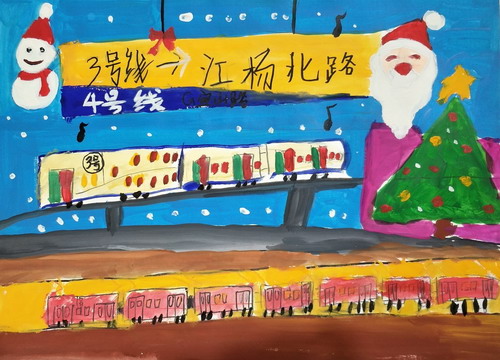 3号线→江杨北路
4号线
3号